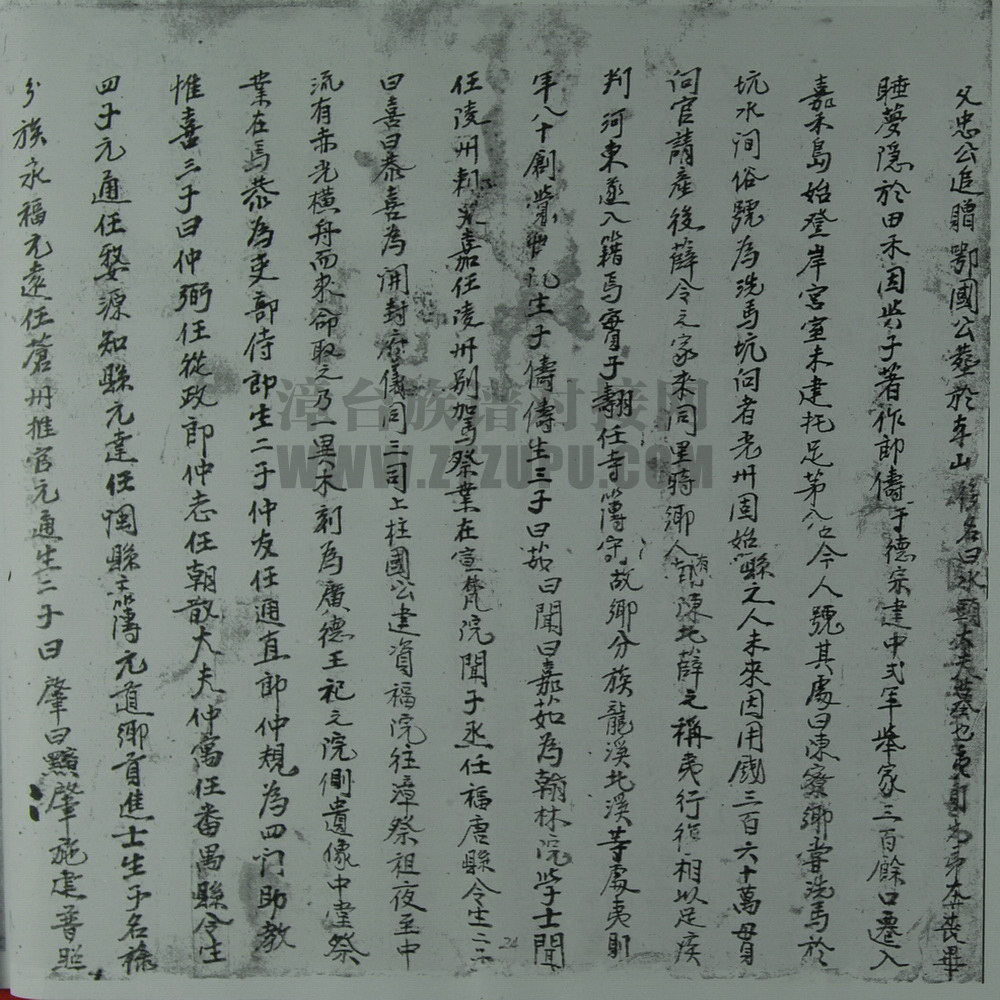 父忠公追贈鄂國公葬於本山 名曰水頭大夫墓也夷則兄弟奔喪畢
睡夢隱於田禾因此子著作郎儔于德宗建中弍年举家三百餘口遷入
嘉禾島始登岸宮室未建托足第八店今人號其處曰陳寮卿嘗洗馬於
坑水澗俗號為洗馬坑问者光州固始縣之人未來因用國三百六十萬貫
问官請產後薛令之家來同里時鄉人有南陳北薛之稱夷行後相以足疾
判河東遂入籍焉實子翿任寺簿守故鄉分族龍溪北溪等處夷則
年八十創 生子儔儔生三子曰茹曰聞曰嘉茹為翰林院學士聞
任陵州刺史嘉任陵州别駕祭業在宣梵院聞子丞任福唐縣令生二子
曰喜曰恭喜為開封府儀同三司上柱國公建資福院往漳祭祖夜至中
流有赤光橫舟而來命取之乃一異木刻為廣德王祀之院側遺像中堂祭
業在焉恭為吏部侍郎生二子仲友任通直郎仲規為四门助教
惟喜三子曰仲弼任從政郎仲志任朝散大夫仲寓任番禺縣令生
四子元通任婺源知縣元達任 縣主簿元道鄉貢進士生子名祿
分族永福元遠任蒼州推官元通生二子曰 肇曰顯肇施建普照
漳台族谱对接网
WWW.ZTZUPU.COM
24